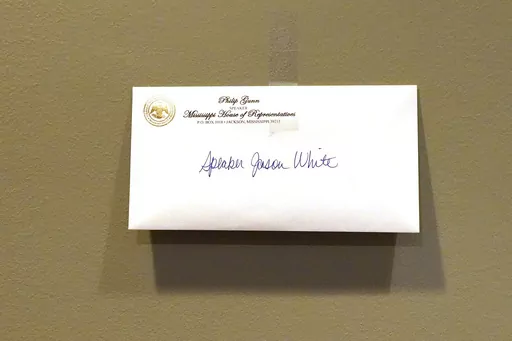 Philip Gunn
SPEAKER
Mississippi House of Representatives
P.O. BOX 1018 • JACKSON, MISSISSIPPI 39215
Speaker Jason White